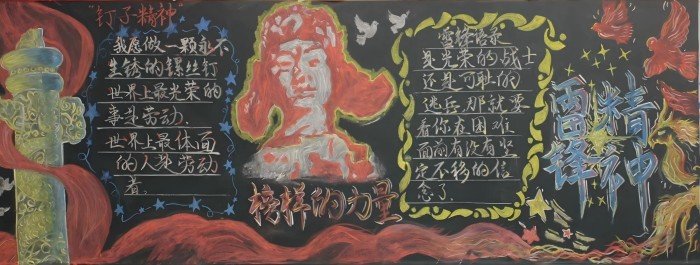 "钉子精神"
我愿做一颗永不
生锈的螺丝钉
世界上最光荣的
事是劳动.
世界上最体面
的人是劳动
者.
榜样的力量
雷锋语录
是光荣的战士
还是可耻的
逃兵那就要
看你在困难
面前有没有坚
定不移的信
念了.
雷锋
精神